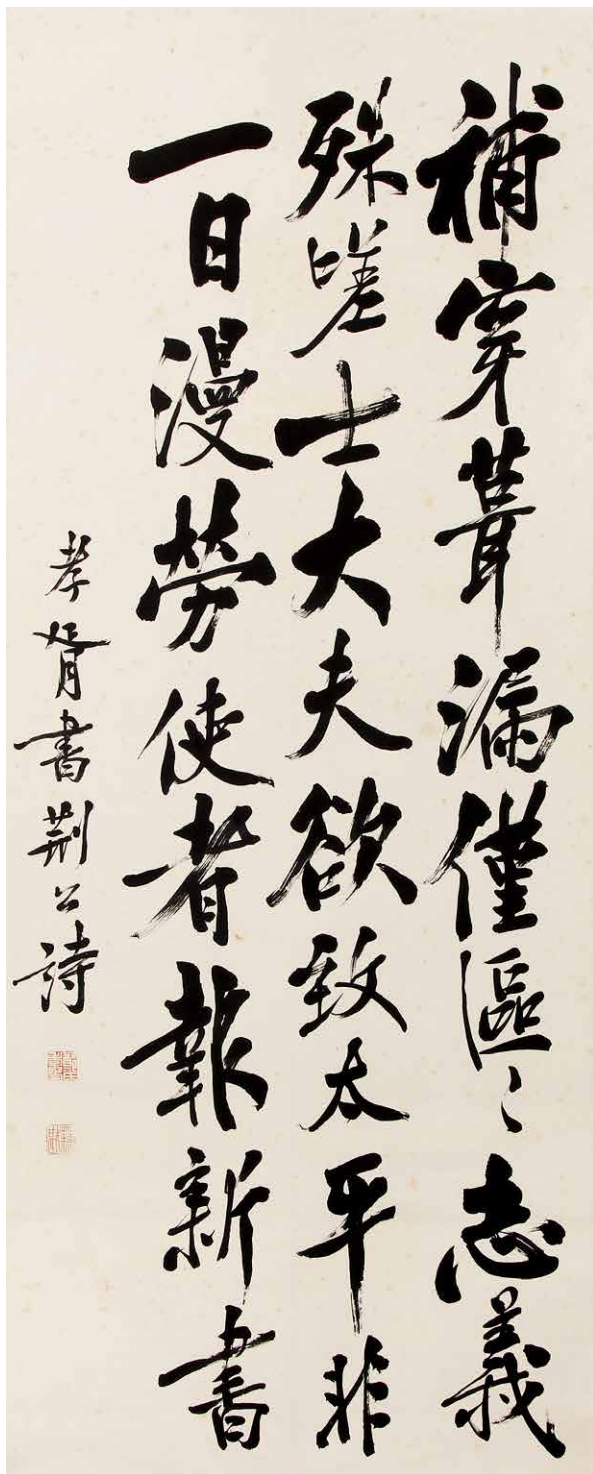 補穿葺漏僅區〻志義
殊嗟士大夫欲致太平非
一日漫勞使者報新書
孝胥書荆公詩